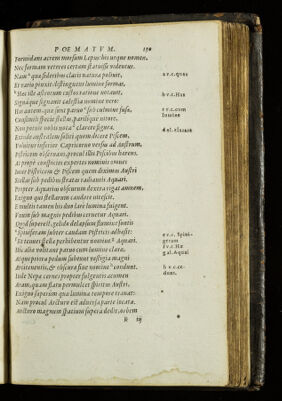 POEMATVM.
Formidans acrem morsum Lepus his urque nomen.
Nec formam veteres certam statuisse videntur.
Nam quæ sideribus claris natura polivit,
Et vario pinxit distinguens lumine formas,
Hæc ille astrorum custos ratione notavit,
Signáque signavit cælestia nomine vero:
Has autem quæ sunt parvo sub lumine fusæ,
Consimili specie stellas, parilíque nitore,
Non potuit nobis nota clarere figura.
Exinde australem soliti quem dicere Piscem,
Volvitur inferior Capricorno versu' ad Austrum,
Pistricem observans, procul illis Piscibus hærens.
At prope conspicies expertes nominis omnes
Inter Pistricem & Piscem quem diximus Austri
Stellas sub pedibus stratas radiantis Aquari.
Propter Aquarius obscurum dextra rigat amnem,
Exiguo qui stellarum candore nitescit.
E multis tamen his duo late lumina fulgent.
Vnum sub magnis pedibus cernetur Aquari.
Quod superest, gelido delapsum flumine fontis
Spiniferam subter caudam Pistricis adhæsit:
Et tenues stellæ perhibentur nomine Aquai.
Hic aliæ volitant parvo cum lumine claræ,
Atque priora pedum subeunt vestigia magni
Arcitenentis, & obscuræ sine nomine cedunt.
Inde Nepæ cernes propter fulgentis acumen
Aram, quam flatu permulcet spiritus Austri.
Exiguo superum quæ lumina tempore tranat:
Nam procul Arcturo est adversa parte locata.
Arcturo magnum spatium supera dedit, orbem